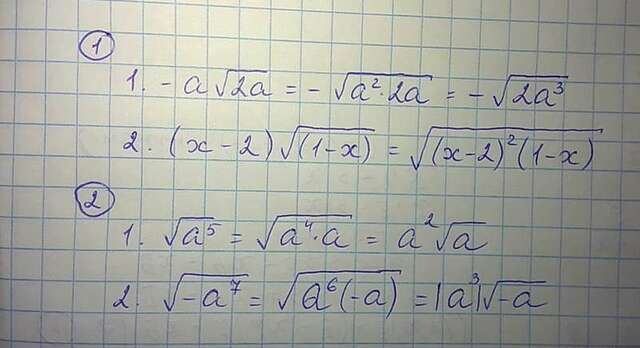 ①
1. -a√(2a) = -√(a²·2a) = -√(2a³)
2. (x-2)√((1-x)) = √((x-2)²(1-x))
②
1. √(a⁵) = √(a⁴·a) = a²√a
2. √(-a⁷) = √(a⁶(-a)) = |a³|√(-a)